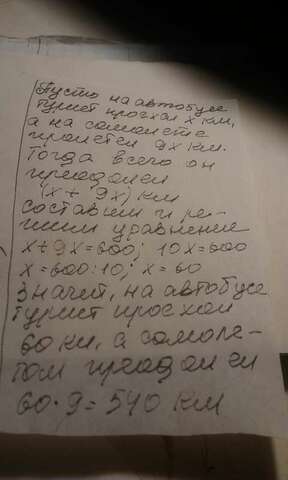 Пусть на автобусе
турист проехал x км,
а на самолете
пролетел 9x км.
Тогда всего он
преодолел
(x + 9x) км
Составим и ре-
шим уравнение
x+9x=600; 10x=600
x=600:10; x=60
Значит, на автобусе
турист проехал
60 км, а самоле-
том преодолел
60·9=540 км